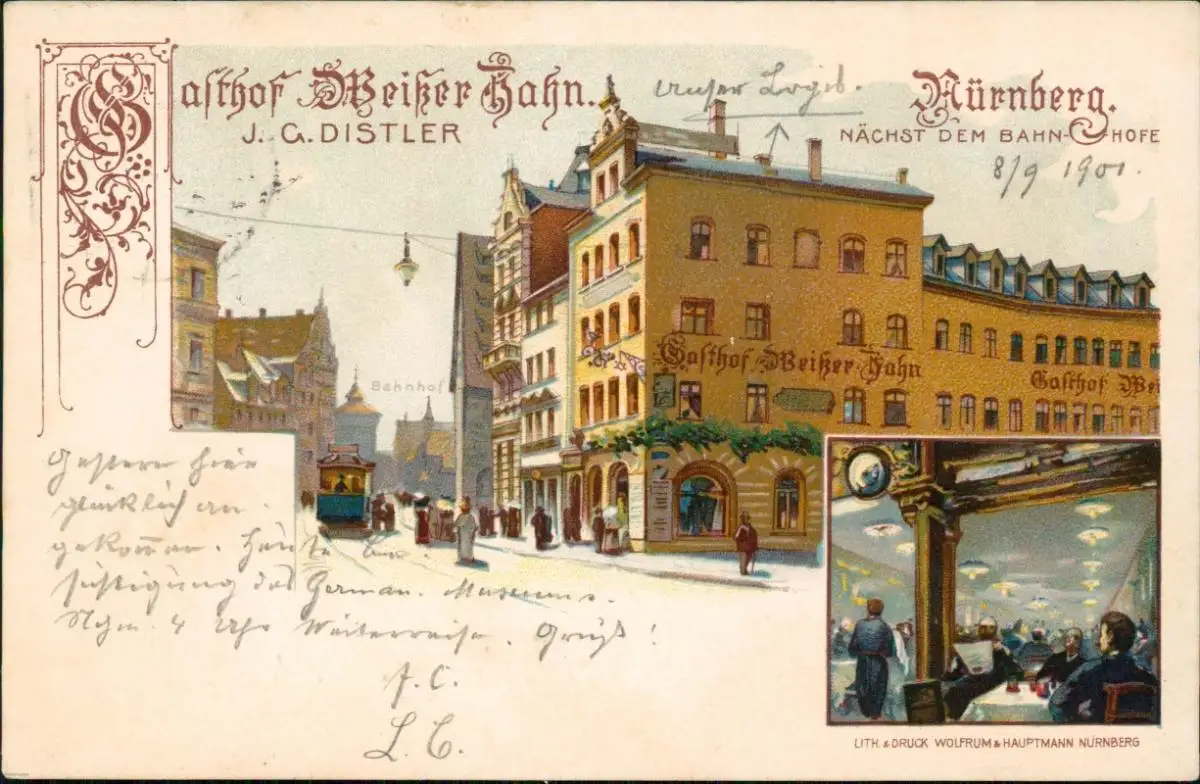 Gasthof Weißer Hahn.
J. G. DISTLER
Unser Logis.
Nürnberg.
NÄCHST DEM BAHN-HOFE
8/9 1901.
Bahnhof
Gasthof Weißer Hahn
Gasthof Wei
Gestern hier
glücklich an-
gekommen. Heute
sichtigung des German. Museums.
Nchm. 4 Uhr Weiterreise. Gruß!
F. C.
L. C.
LITH. & DRUCK WOLFRUM & HAUPTMANN NÜRNBERG